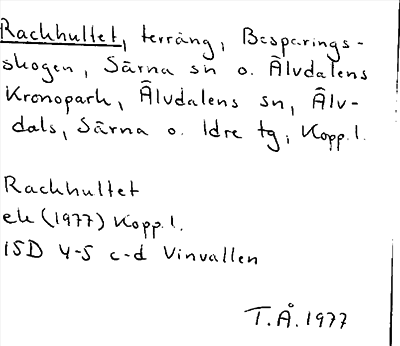 Rackhultet, terräng, Besparings-
skogen, Särna sn o. Älvdalens
Kronopark, Älvdalens sn, Älv-
dals, Särna o. Idre tg, Kopp.l.
Rackhultet
ek (1977) Kopp.l.
15D 4-5 c-d Vinvallen
T.Å. 1977